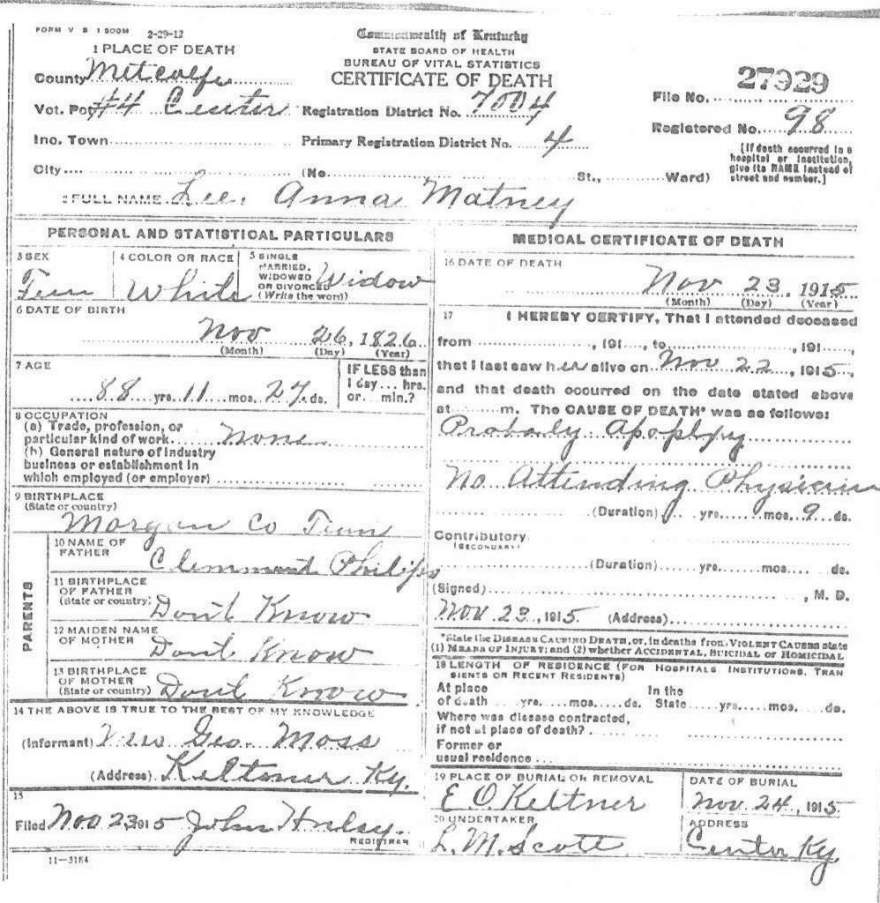 FORM V S 1 500M 2-29-12
Commonwealth of Kentucky
STATE BOARD OF HEALTH
BUREAU OF VITAL STATISTICS
CERTIFICATE OF DEATH
1 PLACE OF DEATH
County Metcalfe
Vot. Pct #4 Center Registration District No. 7004
File No. 27929
Inc. Town Primary Registration District No. 4
Registered No. 98
City (No. St., Ward)
[If death occurred in a hospital or institution, give its NAME instead of street and number.]
2 FULL NAME Lee Anna Matney
PERSONAL AND STATISTICAL PARTICULARS
3 SEX Fem
4 COLOR OR RACE White
5 SINGLE MARRIED, WIDOWED OR DIVORCED (Write the word) Widow
6 DATE OF BIRTH
Nov 26, 1826
(Month) (Day) (Year)
7 AGE
88 yrs. 11 mos. 27 ds.
IF LESS than 1 day... hrs. or... min.?
8 OCCUPATION
(a) Trade, profession, or
particular kind of work None
(b) General nature of industry
business or establishment in
which employed (or employer)
9 BIRTHPLACE
(State or country)
Morgan Co Tenn
PARENTS
10 NAME OF FATHER
Clemmont Philips
11 BIRTHPLACE OF FATHER
(State or country) Dont Know
12 MAIDEN NAME OF MOTHER Dont Know
13 BIRTHPLACE OF MOTHER
(State or country) Dont Know
14 THE ABOVE IS TRUE TO THE BEST OF MY KNOWLEDGE
(Informant) Geo. Moss
(Address) Keltner Ky.
15
Filed Nov 23 1915 John
REGISTRAR
11—3184
MEDICAL CERTIFICATE OF DEATH
16 DATE OF DEATH
Nov 23, 1915
(Month) (Day) (Year)
17 I HEREBY CERTIFY, That I attended deceased
from , 191 , to , 191 ,
that I last saw her alive on Nov 22, 1915,
and that death occurred on the date stated above
at m. The CAUSE OF DEATH* was as follows:
Probaly Apoplpy
No Attending Physician
(Duration) yrs. mos. 9 ds.
Contributory
(SECONDARY)
(Duration) yrs. mos. ds.
(Signed) , M. D.
Nov 23, 1915. (Address)
*State the DISEASE CAUSING DEATH, or, in deaths from VIOLENT CAUSES state
(1) MEANS OF INJURY; and (2) whether ACCIDENTAL, SUICIDAL or HOMICIDAL
18 LENGTH OF RESIDENCE (FOR HOSPITALS INSTITUTIONS, TRAN
SIENTS OR RECENT RESIDENTS)
At place In the
of death yrs. mos. ds. State yrs. mos. ds.
Where was disease contracted,
if not at place of death?
Former or
usual residence
19 PLACE OF BURIAL OR REMOVAL
E O Keltner
DATE OF BURIAL
Nov. 24, 1915
20 UNDERTAKER
L. M. Scott
ADDRESS
Center Ky.